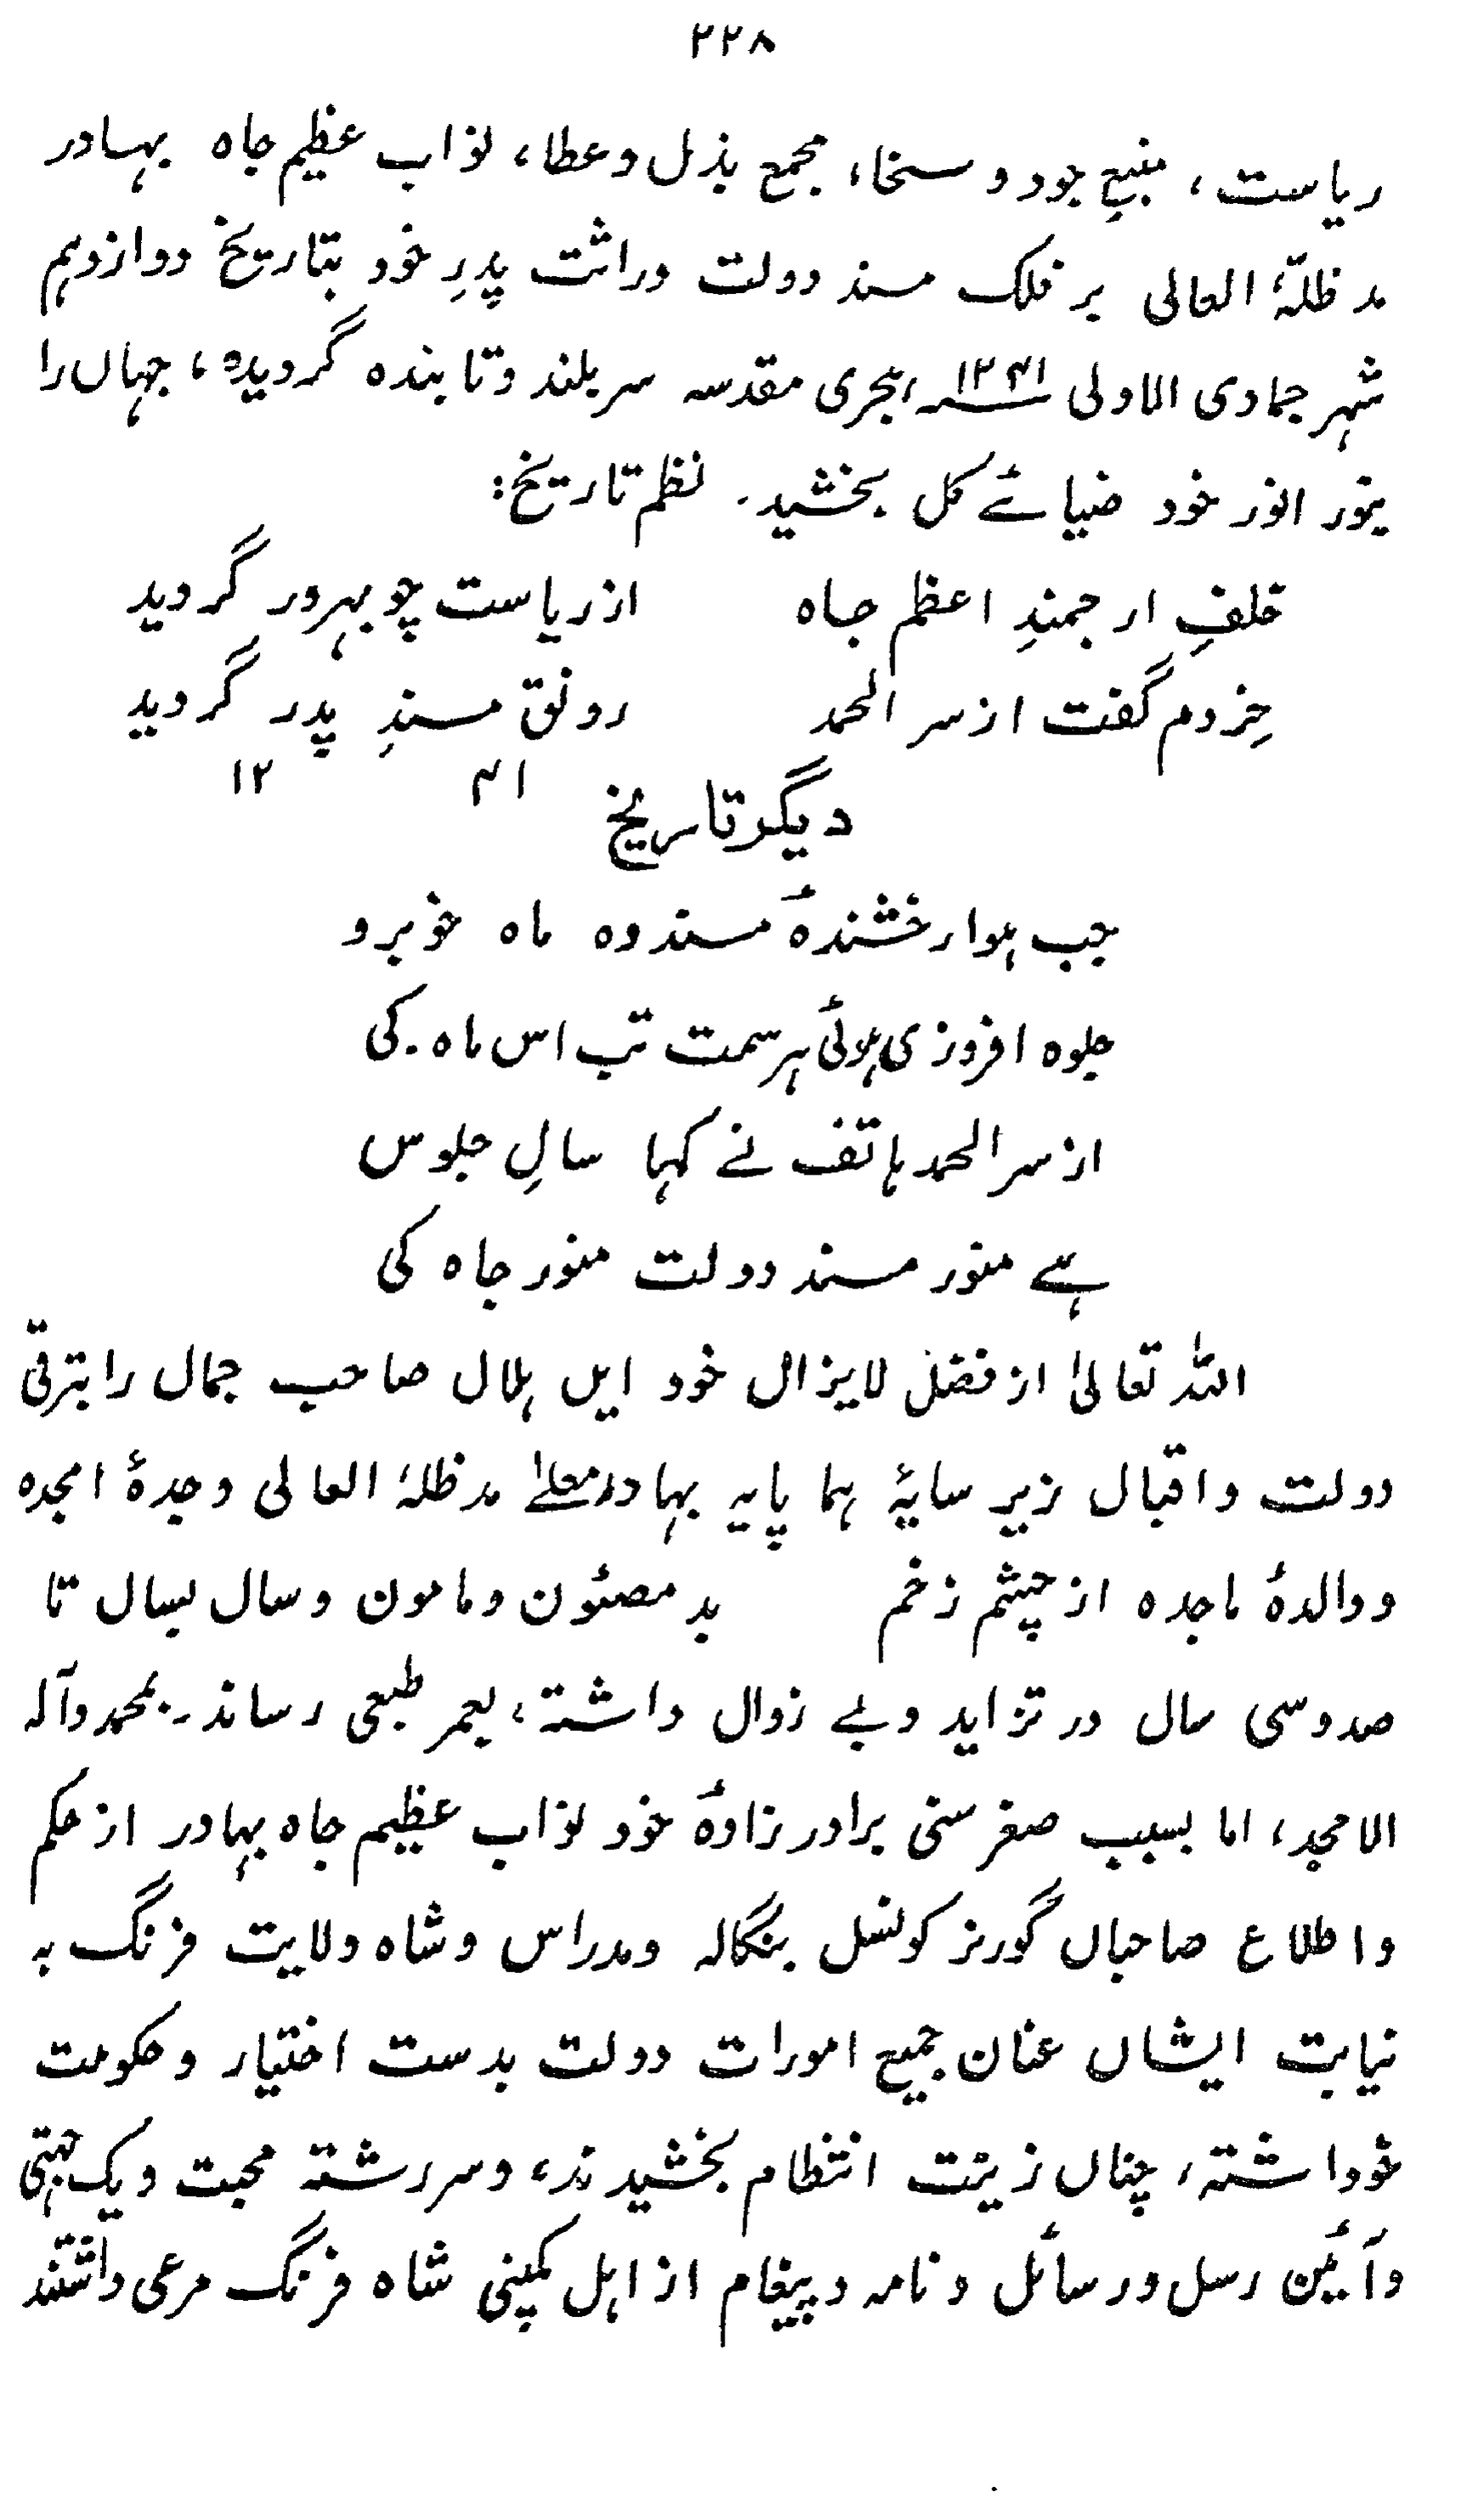 ۲۲۸
ریاست، منبعِ جود و سخا، مجمع بذل و عطا، نواب عظیم جاہ بہادر
مد ظلہٗ العالی بر فلک مسند دولت وراثت پدرِ خود بتاریخ دوازدہم
شہر جمادی الاولی ۱۲۴۱ ہجری مقدسہ سربلند و تابندہ گردیدہ، جہاں را
بنور انور خود ضیائے کل بخشید۔ نظم تاریخ:
خلفِ ارجمندِ اعظم جاہ از ریاست چو بہرور گردید
خِردم گفت از سر الحمد رونق مسندِ پدر گردید
۴۱ ۱۲
دیگر تاریخ
جب ہوا رخشندۂ مسند وہ ماہ خوبرو
جلوہ افروزی ہوئی ہر سمت تب اس ماہ کی
از سر الحمد ہاتف نے کہا سالِ جلوس
ہے منور مسند دولت منور جاہ کی
اللہ تعالیٰ از فضل لایزال خود ایں ہلال صاحب جمال را بترقی
دولت و اقبال زیر سایۂ ہما پایہ بہادر معلے مد ظلہٗ العالی وجدۂ امجدہ
و والدۂ ماجدہ از چشم زخم بد مصئون و مامون و سال بسال تا
صد و سی سال در تزاید و بے زوال داشتہ، بعمر طبعی رساند۔ بمحمد وآلہ
الامجد، اما بسبب صغر سنی برادر زادۂ خود نواب عظیم جاہ بہادر از حکم
و اطلاع صاحباں گورنر کونسل بنگالہ و مدراس و شاہ ولایت فرنگ بہ
نیابت ایشاں عنان جمیع امورات دولت بدست اختیار و حکومت
خود داشتہ، چناں زینت انتظام بخشیدند، و سررشتہ محبت و یک جہتی
و آئین رسل و رسائل و نامہ و پیغام از اہل کمپنی شاہ فرنگ مرعی داشتند